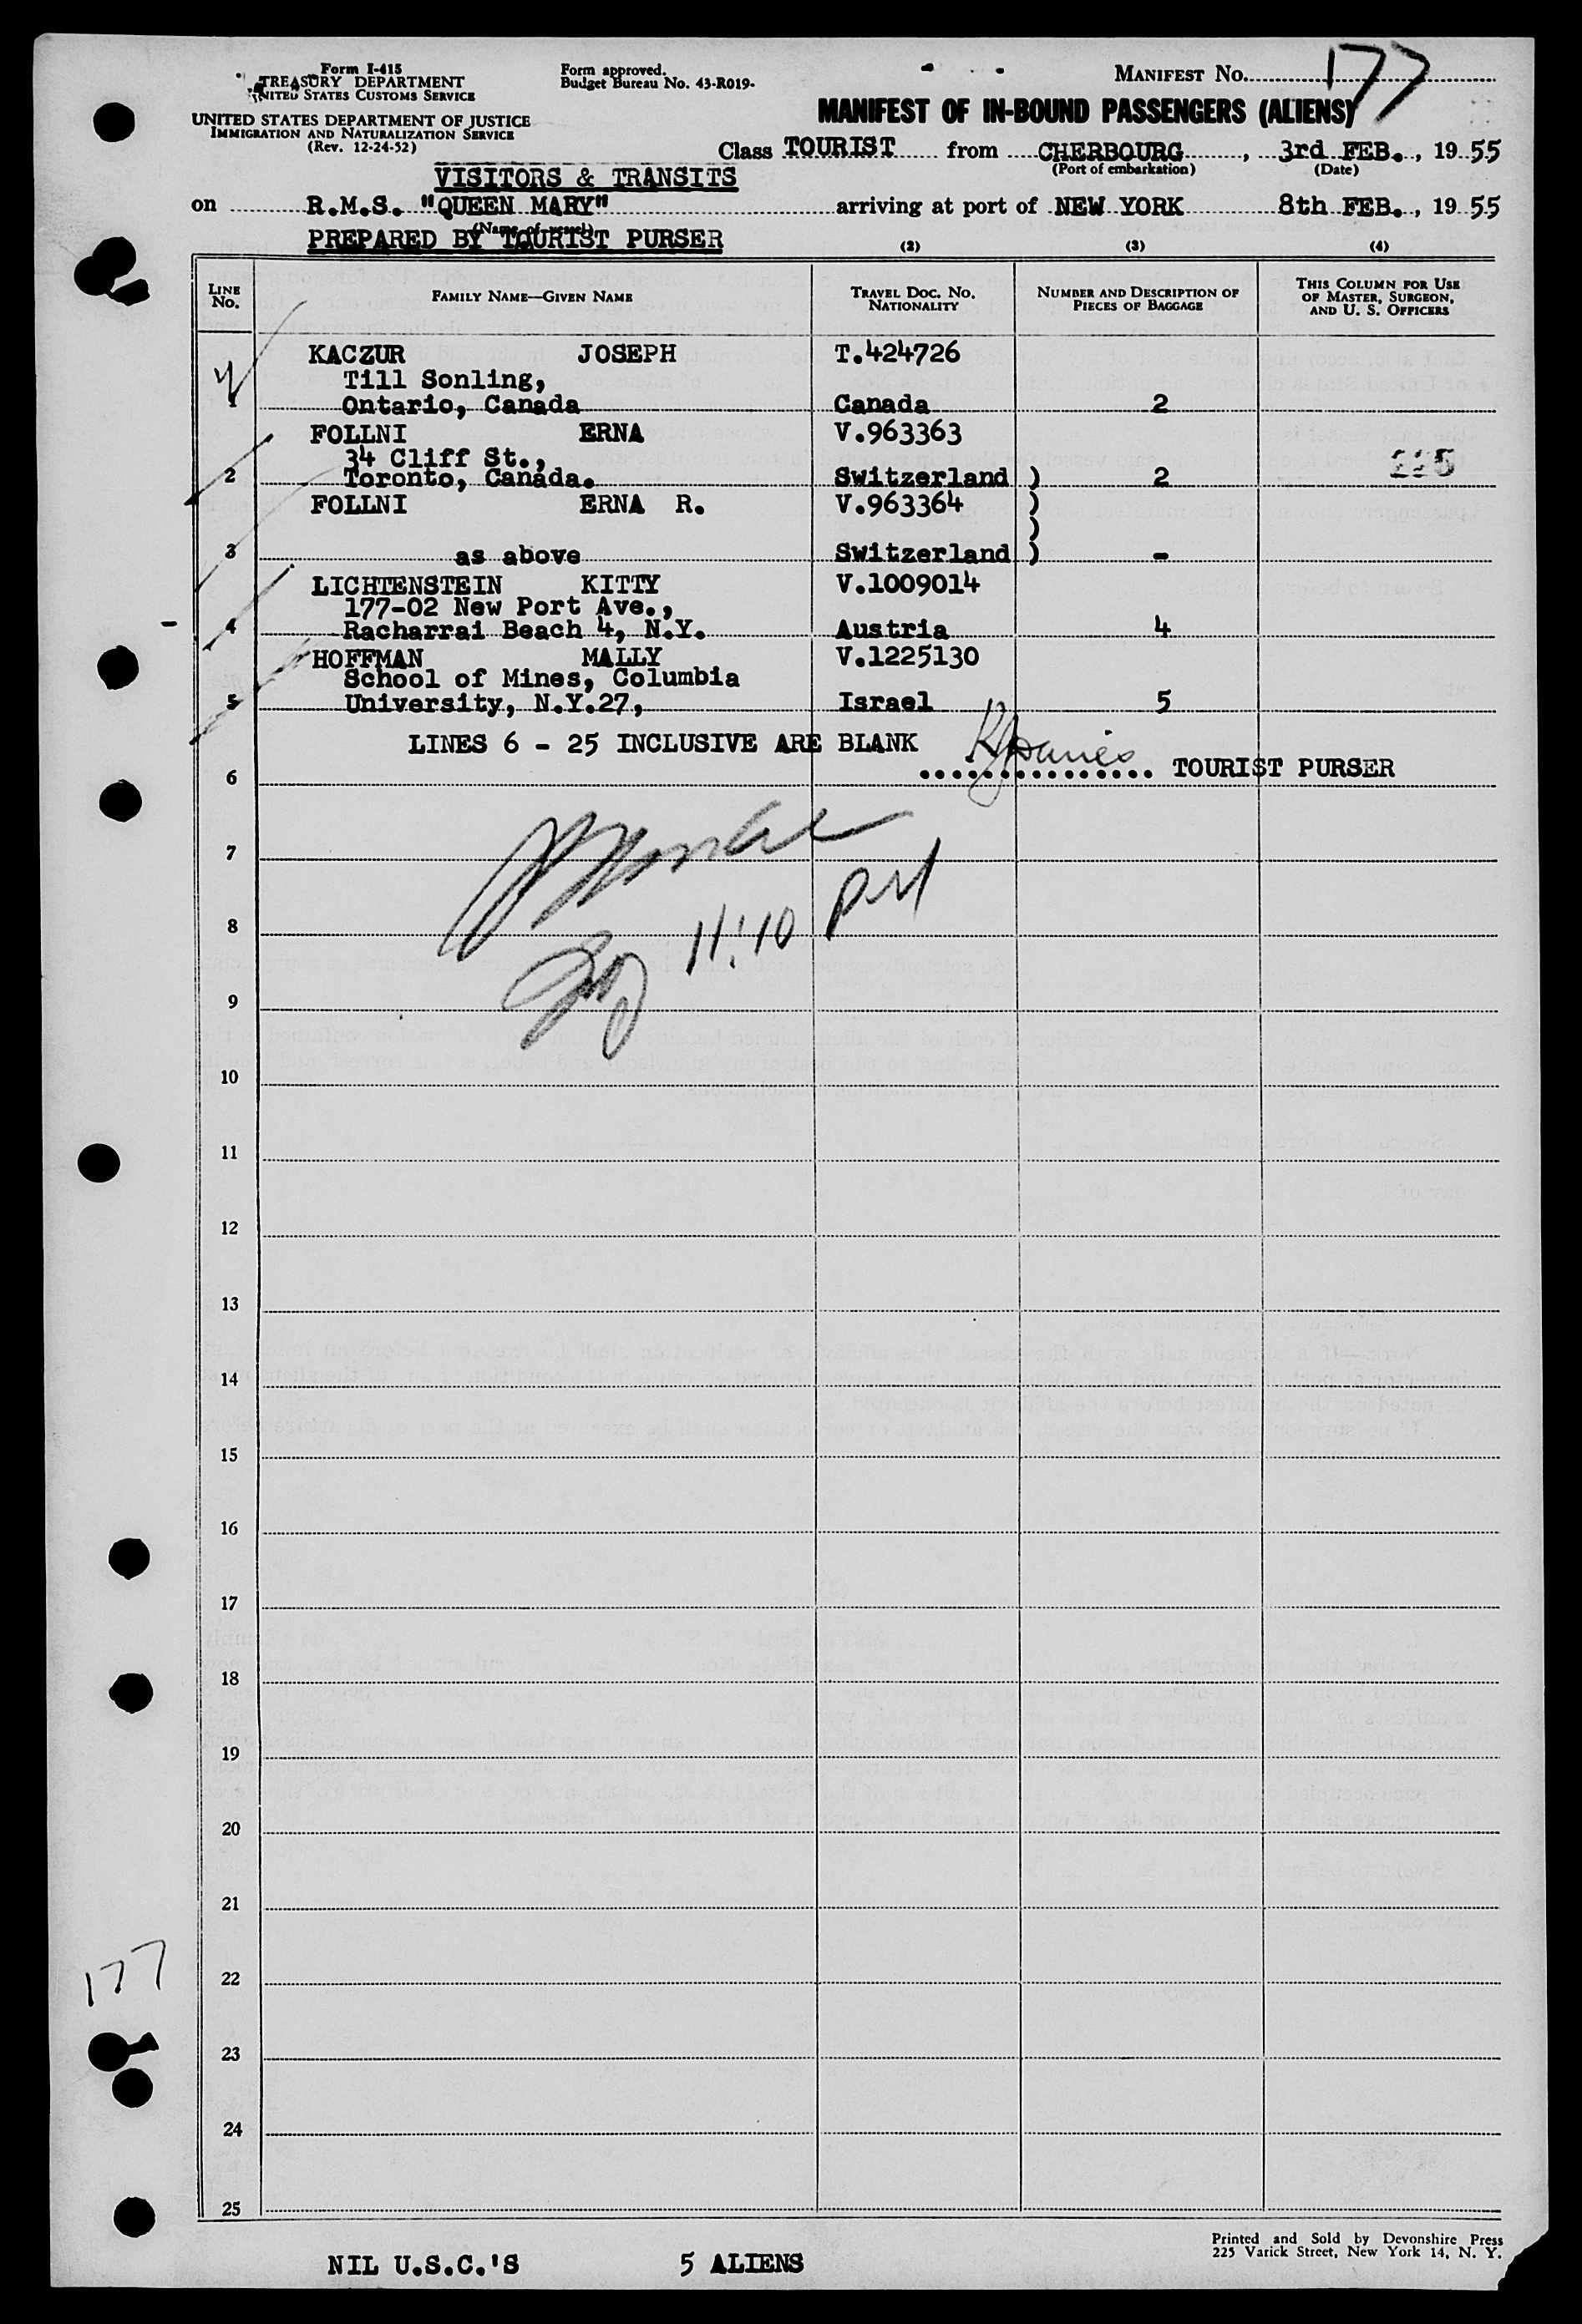 Form I-415
TREASURY DEPARTMENT
UNITED STATES CUSTOMS SERVICE
UNITED STATES DEPARTMENT OF JUSTICE
IMMIGRATION AND NATURALIZATION SERVICE
(Rev. 12-24-52)
Form approved.
Budget Bureau No. 43-R019-
MANIFEST NO. 177
MANIFEST OF IN-BOUND PASSENGERS (ALIENS)
Class TOURIST from CHERBOURG, 3rd FEB., 1955
(Port of embarkation) (Date)
VISITORS & TRANSITS
on R.M.S. "QUEEN MARY" arriving at port of NEW YORK 8th FEB., 1955
(Name of vessel)
PREPARED BY TOURIST PURSER
(2) (3) (4)
LINE NO. FAMILY NAME—GIVEN NAME TRAVEL DOC. NO. NATIONALITY NUMBER AND DESCRIPTION OF PIECES OF BAGGAGE THIS COLUMN FOR USE OF MASTER, SURGEON, AND U. S. OFFICERS
KACZUR JOSEPH T.424726
Till Sonling,
1 Ontario, Canada Canada 2
FOLLNI ERNA V.963363
34 Cliff St.,
2 Toronto, Canada. Switzerland ) 2
FOLLNI ERNA R. V.963364 )
)
3 as above Switzerland ) -
LICHTENSTEIN KITTY V.1009014
177-02 New Port Ave.,
4 Racharrai Beach 4, N.Y. Austria 4
HOFFMAN MALLY V.1225130
School of Mines, Columbia
5 University, N.Y.27, Israel 5
LINES 6 - 25 INCLUSIVE ARE BLANK
6 ............... TOURIST PURSER
7
8 11:10
9
10
11
12
13
14
15
16
17
18
19
20
21
22
177
23
24
25
Printed and Sold by Devonshire Press
225 Varick Street, New York 14, N. Y.
NIL U.S.C.'S 5 ALIENS